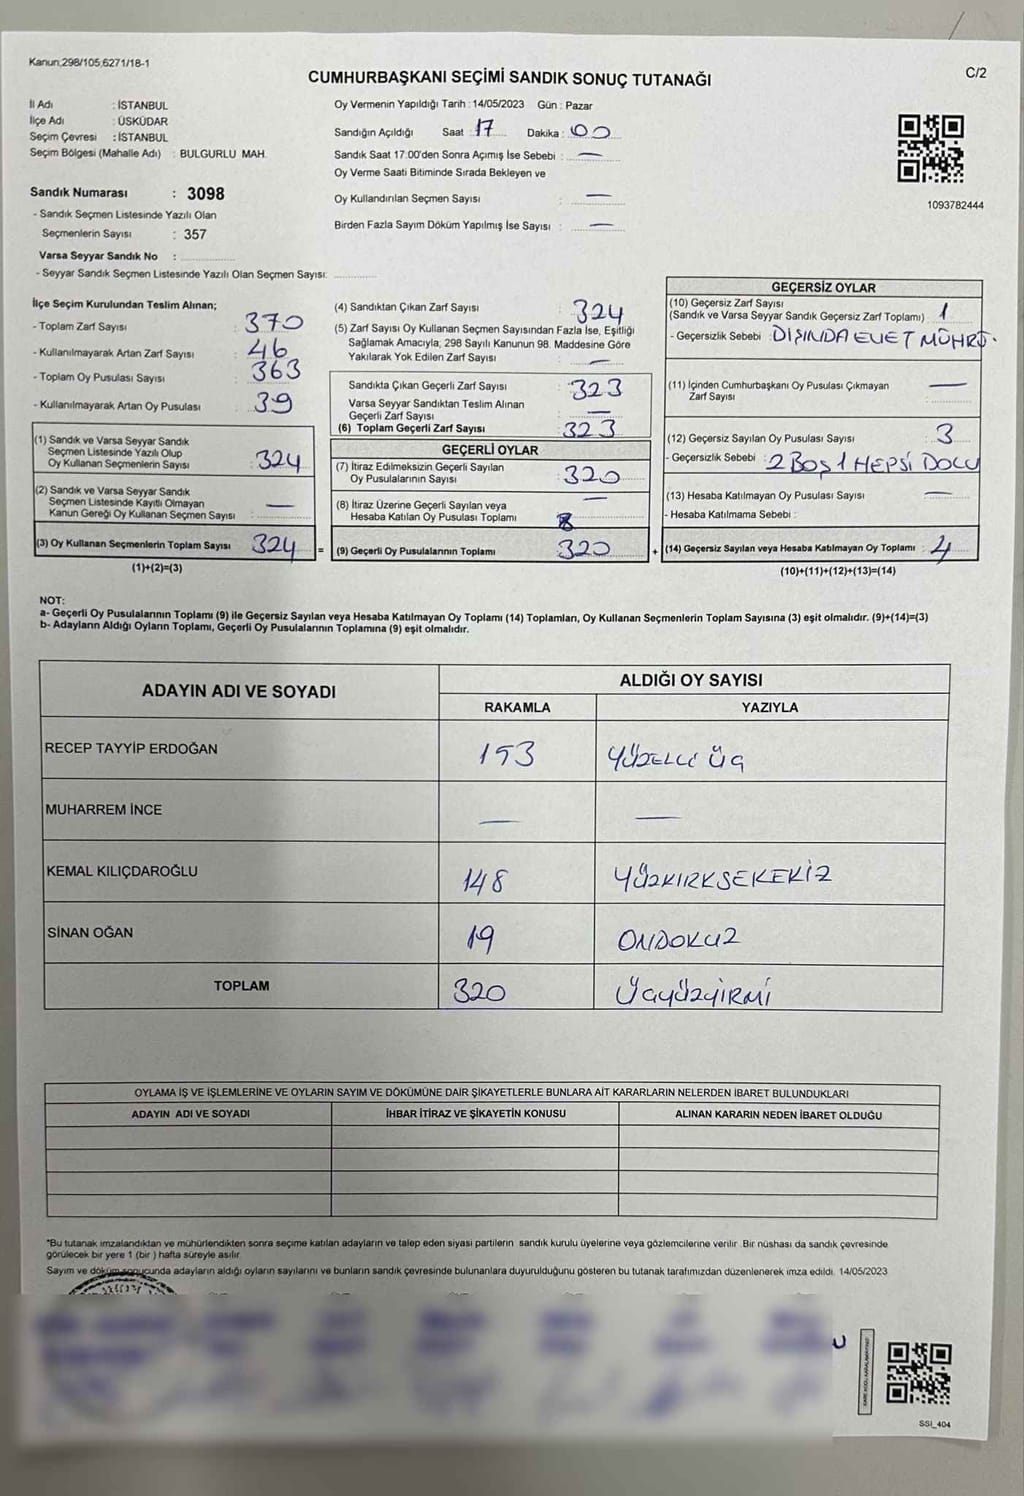 Kanun;298/105;6271/18-1
C/2
CUMHURBAŞKANI SEÇİMİ SANDIK SONUÇ TUTANAĞI
İl Adı : İSTANBUL
İlçe Adı : ÜSKÜDAR
Seçim Çevresi : İSTANBUL
Seçim Bölgesi (Mahalle Adı) : BULGURLU MAH.
Sandık Numarası : 3098
- Sandık Seçmen Listesinde Yazılı Olan
Seçmenlerin Sayısı : 357
Varsa Seyyar Sandık No :
- Seyyar Sandık Seçmen Listesinde Yazılı Olan Seçmen Sayısı:
Oy Vermenin Yapıldığı Tarih : 14/05/2023 Gün : Pazar
Sandığın Açıldığı Saat : 17 Dakika : 00
Sandık Saat 17:00'den Sonra Açımış İse Sebebi : —
Oy Verme Saati Bitiminde Sırada Bekleyen ve
Oy Kullandırılan Seçmen Sayısı : —
Birden Fazla Sayım Döküm Yapılmış İse Sayısı : —
1093782444
İlçe Seçim Kurulundan Teslim Alınan;
- Toplam Zarf Sayısı : 370
- Kullanılmayarak Artan Zarf Sayısı : 46
- Toplam Oy Pusulası Sayısı : 363
- Kullanılmayarak Artan Oy Pusulası : 39
(1) Sandık ve Varsa Seyyar Sandık
Seçmen Listesinde Yazılı Olup
Oy Kullanan Seçmenlerin Sayısı : 324
(2) Sandık ve Varsa Seyyar Sandık
Seçmen Listesinde Kayıtlı Olmayan
Kanun Gereği Oy Kullanan Seçmen Sayısı : —
(3) Oy Kullanan Seçmenlerin Toplam Sayısı 324 =
(1)+(2)=(3)
(4) Sandıktan Çıkan Zarf Sayısı : 324
(5) Zarf Sayısı Oy Kullanan Seçmen Sayısından Fazla İse, Eşitliği
Sağlamak Amacıyla, 298 Sayılı Kanunun 98. Maddesine Göre
Yakılarak Yok Edilen Zarf Sayısı : —
Sandıkta Çıkan Geçerli Zarf Sayısı : 323
Varsa Seyyar Sandıktan Teslim Alınan
Geçerli Zarf Sayısı : —
(6) Toplam Geçerli Zarf Sayısı : 323
GEÇERLİ OYLAR
(7) İtiraz Edilmeksizin Geçerli Sayılan
Oy Pusulalarının Sayısı : 320
(8) İtiraz Üzerine Geçerli Sayılan veya
Hesaba Katılan Oy Pusulası Toplamı : —
(9) Geçerli Oy Pusulalarının Toplamı : 320 +
GEÇERSİZ OYLAR
(10) Geçersiz Zarf Sayısı
(Sandık ve Varsa Seyyar Sandık Geçersiz Zarf Toplamı) : 1
- Geçersizlik Sebebi : DIŞINDA EVET MÜHRÜ.
(11) İçinden Cumhurbaşkanı Oy Pusulası Çıkmayan
Zarf Sayısı : —
(12) Geçersiz Sayılan Oy Pusulası Sayısı : 3
- Geçersizlik Sebebi : 2 BOŞ 1 HEPSİ DOLU
(13) Hesaba Katılmayan Oy Pusulası Sayısı : —
- Hesaba Katılmama Sebebi :
(14) Geçersiz Sayılan veya Hesaba Katılmayan Oy Toplamı : 4
(10)+(11)+(12)+(13)=(14)
NOT:
a- Geçerli Oy Pusulalarının Toplamı (9) ile Geçersiz Sayılan veya Hesaba Katılmayan Oy Toplamı (14) Toplamları, Oy Kullanan Seçmenlerin Toplam Sayısına (3) eşit olmalıdır. (9)+(14)=(3)
b- Adayların Aldığı Oyların Toplamı, Geçerli Oy Pusulalarının Toplamına (9) eşit olmalıdır.
ADAYIN ADI VE SOYADI ALDIĞI OY SAYISI
RAKAMLA YAZIYLA
RECEP TAYYİP ERDOĞAN 153 YÜZELLİ ÜÇ
MUHARREM İNCE — —
KEMAL KILIÇDAROĞLU 148 YÜZKIRKSEKEKİZ
SİNAN OĞAN 19 ONDOKUZ
TOPLAM 320 ÜÇYÜZYİRMİ
OYLAMA İŞ VE İŞLEMLERİNE VE OYLARIN SAYIM VE DÖKÜMÜNE DAİR ŞİKAYETLERLE BUNLARA AİT KARARLARIN NELERDEN İBARET BULUNDUKLARI
ADAYIN ADI VE SOYADI İHBAR İTİRAZ VE ŞİKAYETİN KONUSU ALINAN KARARIN NEDEN İBARET OLDUĞU
*Bu tutanak imzalandıktan ve mühürlendikten sonra seçime katılan adayların ve talep eden siyasi partilerin sandık kurulu üyelerine veya gözlemcilerine verilir. Bir nüshası da sandık çevresinde
görülecek bir yere 1 (bir) hafta süreyle asılır.
Sayım ve döküm sonucunda adayların aldığı oyların sayılarını ve bunların sandık çevresinde bulunanlara duyurulduğunu gösteren bu tutanak tarafımızdan düzenlenerek imza edildi. 14/05/2023
SSI_404